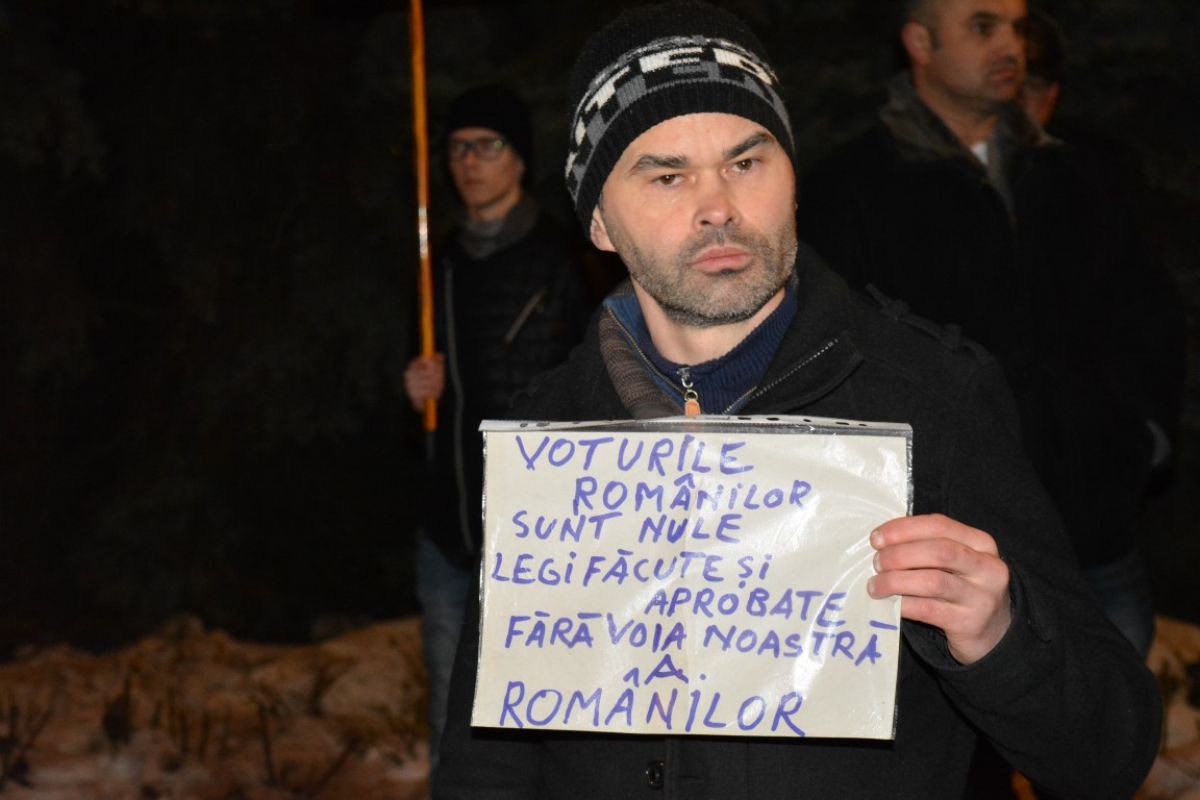 VOTURILE
ROMÂNILOR
SUNT NULE
LEGI FĂCUTE ȘI
APROBATE
FĂRĂ VOIA NOASTRĂ
A
ROMÂNILOR